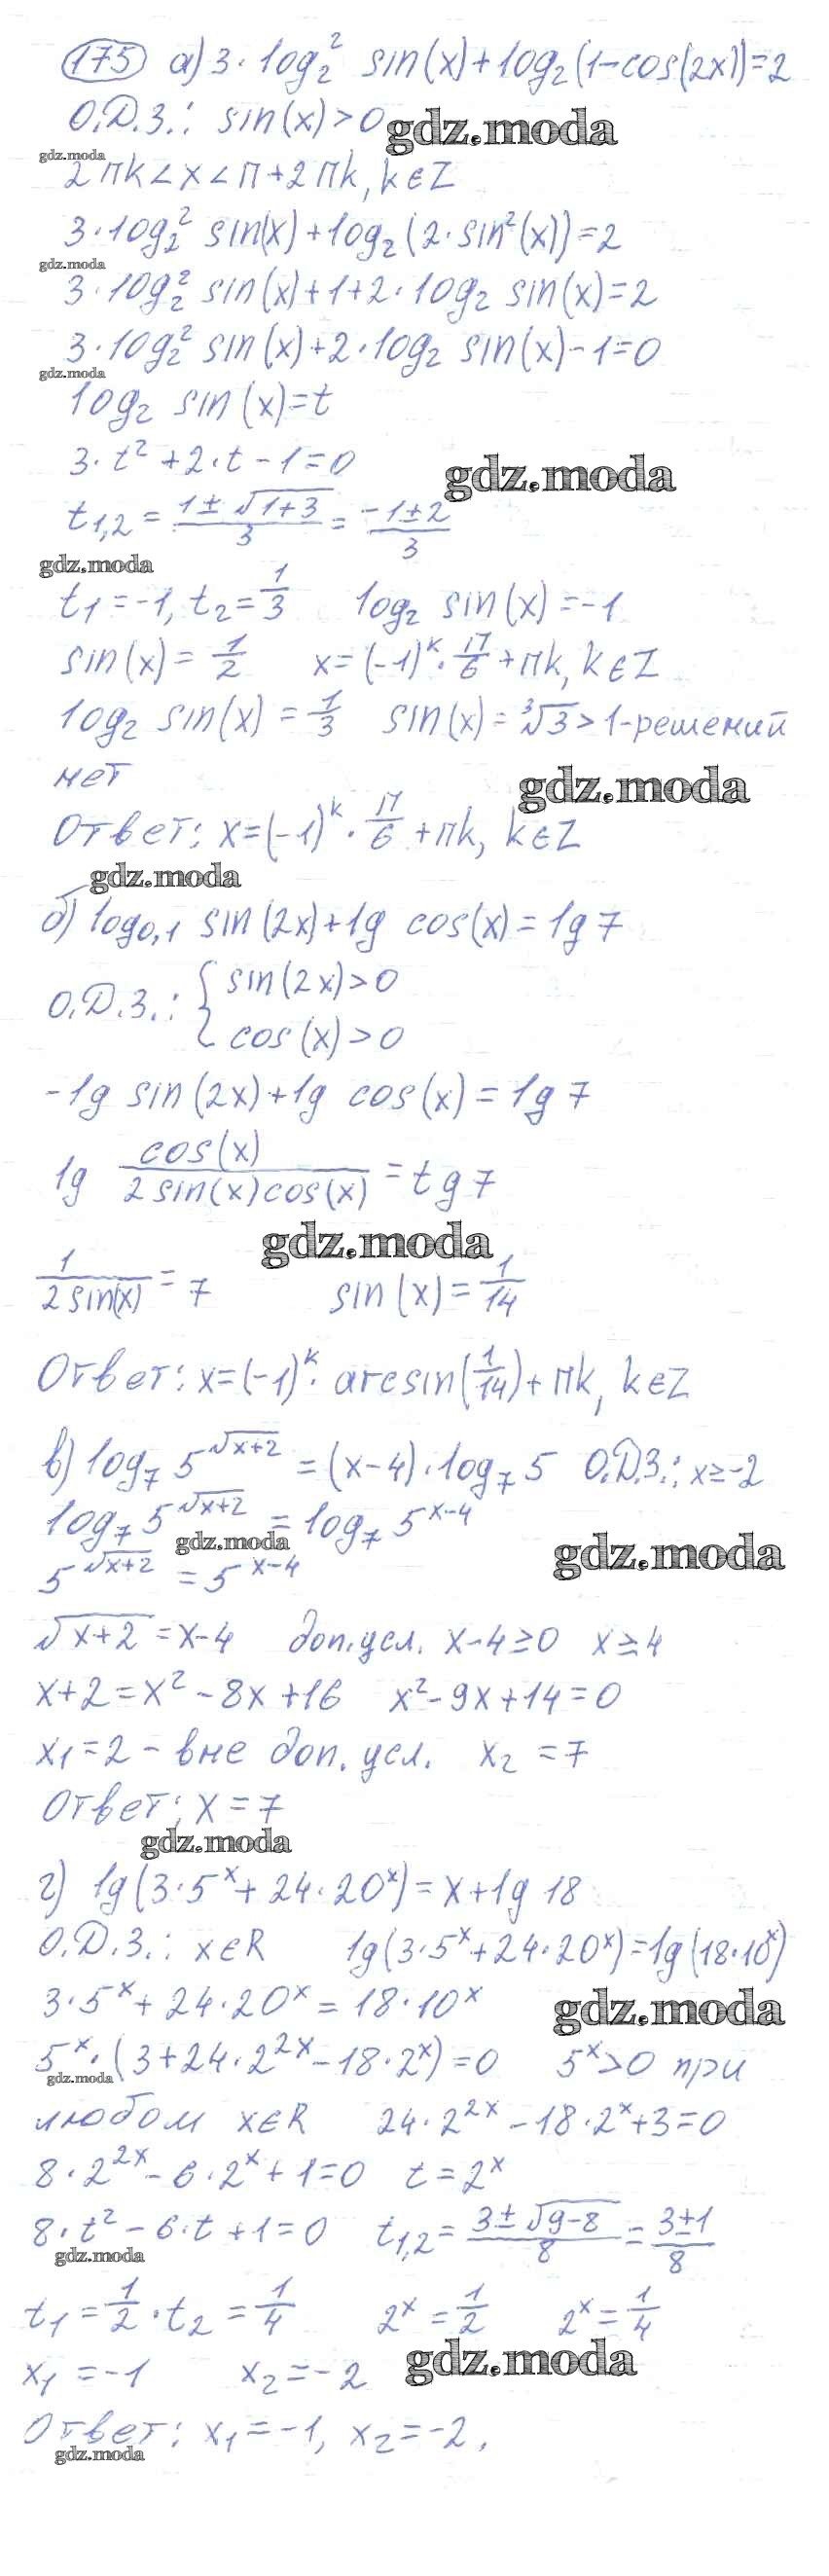 175 а) 3·log₂² sin(x)+log₂(1-cos(2x))=2
О.Д.З.: sin(x)>0
gdz.moda
gdz.moda
2πk<x<π+2πk, k∈Z
3·log₂² sin(x)+log₂(2·sin²(x))=2
gdz.moda
3·log₂² sin(x)+1+2·log₂ sin(x)=2
3·log₂² sin(x)+2·log₂ sin(x)-1=0
gdz.moda
log₂ sin(x)=t
3·t²+2·t-1=0
gdz.moda
t₁,₂=(1±√(1+3))/3=(-1±2)/3
gdz.moda
t₁=-1, t₂=1/3 log₂ sin(x)=-1
sin(x)=1/2 x=(-1)ᵏ·π/6+πk, k∈Z
log₂ sin(x)=1/3 sin(x)=³√3>1-решений
нет
gdz.moda
Ответ: x=(-1)ᵏ·π/6+πk, k∈Z
gdz.moda
б) log₀,₁ sin(2x)+lg cos(x)=lg 7
О.Д.З.: { sin(2x)>0
cos(x)>0
-lg sin(2x)+lg cos(x)=lg 7
lg cos(x)/(2sin(x)cos(x))=tg 7
gdz.moda
1/(2sin(x))=7 sin(x)=1/14
Ответ: x=(-1)ᵏ· arcsin(1/14)+πk, k∈Z
в) log₇ 5^(√(x+2))=(x-4)·log₇ 5 О.Д.З.: x≥-2
log₇ 5^(√(x+2))=log₇ 5^(x-4)
gdz.moda
gdz.moda
5^(√(x+2))=5^(x-4)
√(x+2)=x-4 доп.усл. x-4≥0 x≥4
x+2=x²-8x+16 x²-9x+14=0
x₁=2-вне доп. усл. x₂=7
Ответ: x=7
gdz.moda
г) lg(3·5ˣ+24·20ˣ)=x+lg 18
О.Д.З.: x∈R lg(3·5ˣ+24·20ˣ)=lg(18·10ˣ)
3·5ˣ+24·20ˣ=18·10ˣ
gdz.moda
5ˣ·(3+24·2²ˣ-18·2ˣ)=0 5ˣ>0 при
gdz.moda
любом x∈R 24·2²ˣ-18·2ˣ+3=0
8·2²ˣ-6·2ˣ+1=0 t=2ˣ
8·t²-6·t+1=0 t₁,₂=(3±√(9-8))/8=(3±1)/8
gdz.moda
t₁=1/2·t₂=1/4 2ˣ=1/2 2ˣ=1/4
x₁=-1 x₂=-2
gdz.moda
Ответ: x₁=-1, x₂=-2,
gdz.moda